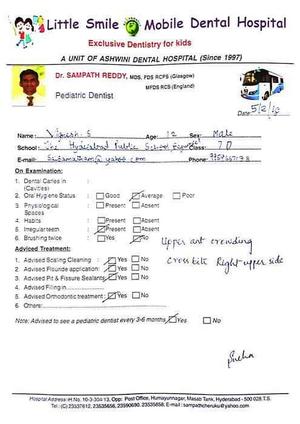 Little Smile Mobile Dental Hospital
Exclusive Dentistry for kids
A UNIT OF ASHWINI DENTAL HOSPITAL (Since 1997)
Dr. SAMPATH REDDY, MDS, FDS RCPS (Glasgow)
MFDS RCS (England)
Pediatric Dentist
Date: 5/2/
Name: S Age: 12 Sex: Male
School: The Hyderabad Public School Class: 7 D
E-mail: @yahoo.com Phone:
On Examination:
1. Dental Caries in (Cavities)
2. Oral Hygiene Status Good Average Poor
3. Physiological Spaces Present Absent
4. Habits Present Absent
5. Irregular teeth Present Absent
6. Brushing twice Yes No
Upper ant crowding
Crossbite Right upper side
Adviced Treatment:
1. Advised Scaling Cleaning: Yes No
2. Advised Flouride application: Yes No
3. Advised Pit & Fissure Sealants Yes No
4. Advised Filling in
5. Advised Orthodontic treatment: Yes No
6. Others:
Note: Advised to see a pediatric dentist every 3-6 months Yes No
Hospital Address: H.No. 10-3-304/13, Opp: Post Office, Humayunnagar, Masab Tank, Hyderabad - 500 028.T.S.
Tel: (C) 23537612, 23535656, 23590690, 23535858, E-mail: sampathcheruku@yahoo.com